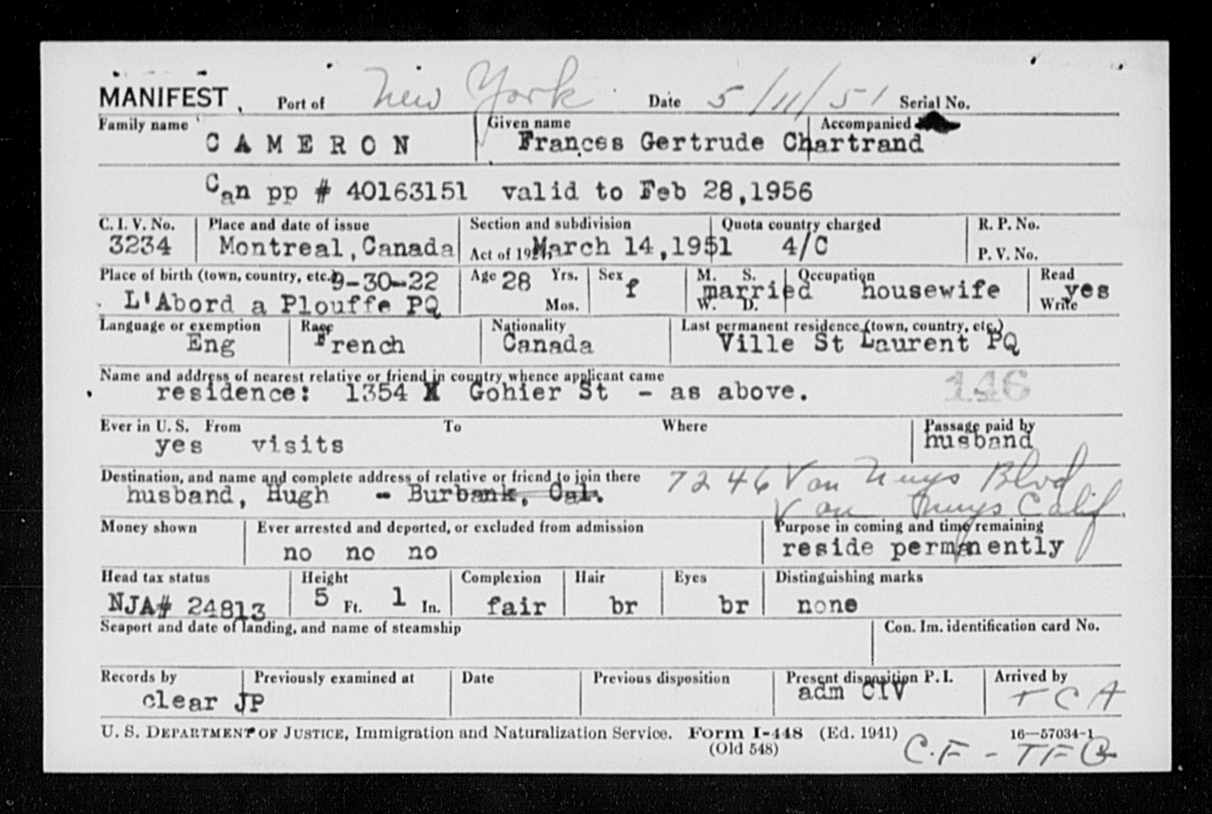 MANIFEST, Port of New York Date 5/11/51 Serial No.
Family name Given name Accompanied
CAMERON Frances Gertrude Chartrand
Can pp # 40163151 valid to Feb 28,1956
C. I. V. No. Place and date of issue Section and subdivision Quota country charged R. P. No.
3234 Montreal,Canada Act of 19 March 14,1951 4/C P. V. No.
Place of birth (town, country, etc.) 9-30-22 Age 28 Yrs. Sex M. S. Occupation Read
L'Abord a Plouffe PQ Mos. f married W. D. housewife yes Write
Language or exemption Race Nationality Last permanent residence (town, country, etc.)
Eng French Canada Ville St Laurent PQ
Name and address of nearest relative or friend in country whence applicant came 146
residence: 1354 Gohier St - as above.
Ever in U. S. From To Where Passage paid by
yes visits husband
Destination, and name and complete address of relative or friend to join there 7246 Van Nuys Blvd
husband, Hugh - Burbank, Cal. Van Nuys Calif.
Money shown Ever arrested and deported, or excluded from admission Purpose in coming and time remaining
no no no reside permanently
Head tax status Height Complexion Hair Eyes Distinguishing marks
NJA# 24813 5 Ft. 1 In. fair br br none
Seaport and date of landing, and name of steamship Con. Im. identification card No.
Records by Previously examined at Date Previous disposition Present disposition P. I. Arrived by
clear JP adm CIV TCA
U. S. DEPARTMENT OF JUSTICE, Immigration and Naturalization Service. Form I-448 (Ed. 1941) 16—57034-1
(Old 548) C.F - TFB